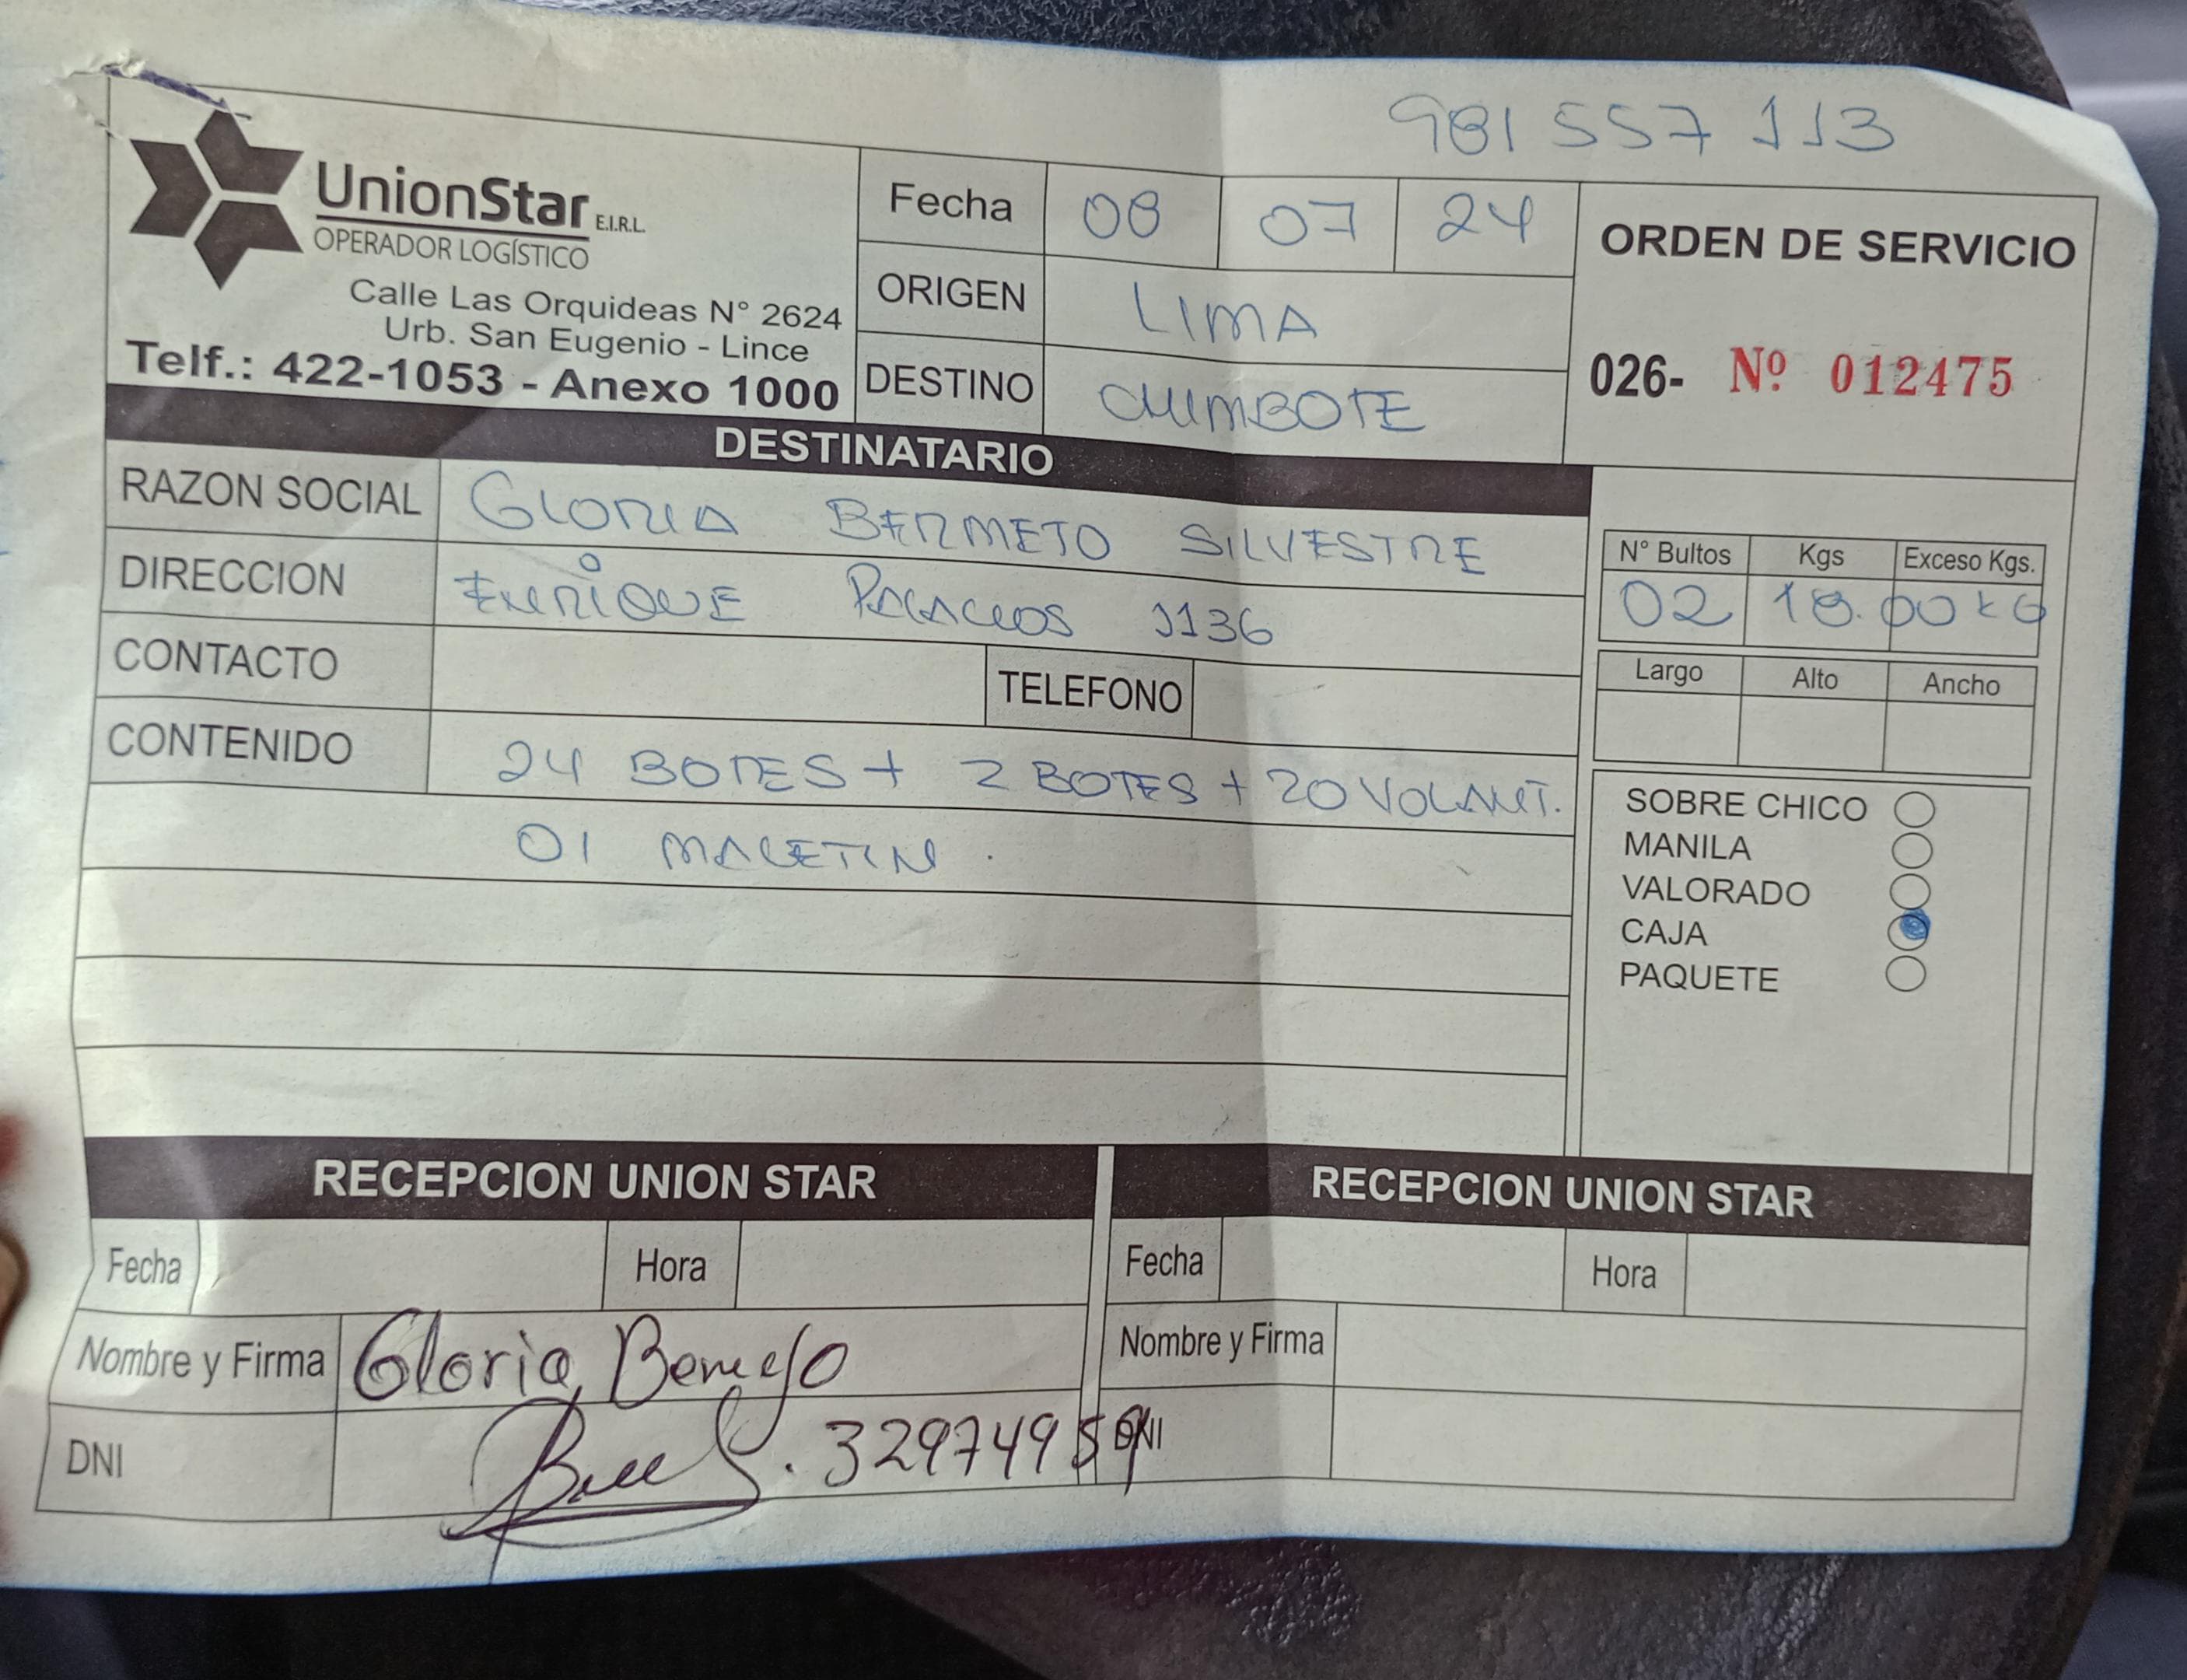 981 557 113
UnionStar E.I.R.L.
OPERADOR LOGÍSTICO
Calle Las Orquideas N° 2624
Urb. San Eugenio - Lince
Telf.: 422-1053 - Anexo 1000
Fecha 08 07 24
ORIGEN LIMA
DESTINO CHIMBOTE
ORDEN DE SERVICIO
026- Nº 012475
DESTINATARIO
RAZON SOCIAL GLORIA BERMEJO SILVESTRE
DIRECCION ENRIQUE PALACIOS 1136
CONTACTO TELEFONO
CONTENIDO 24 BOTES + 2 BOTES + 20 VOLANT.
01 MALETIN.
N° Bultos Kgs Exceso Kgs.
02 18.00 KG
Largo Alto Ancho
SOBRE CHICO
MANILA
VALORADO
CAJA
PAQUETE
RECEPCION UNION STAR
Fecha Hora
Nombre y Firma Gloria Bermejo
DNI 32974959
RECEPCION UNION STAR
Fecha Hora
Nombre y Firma
DNI